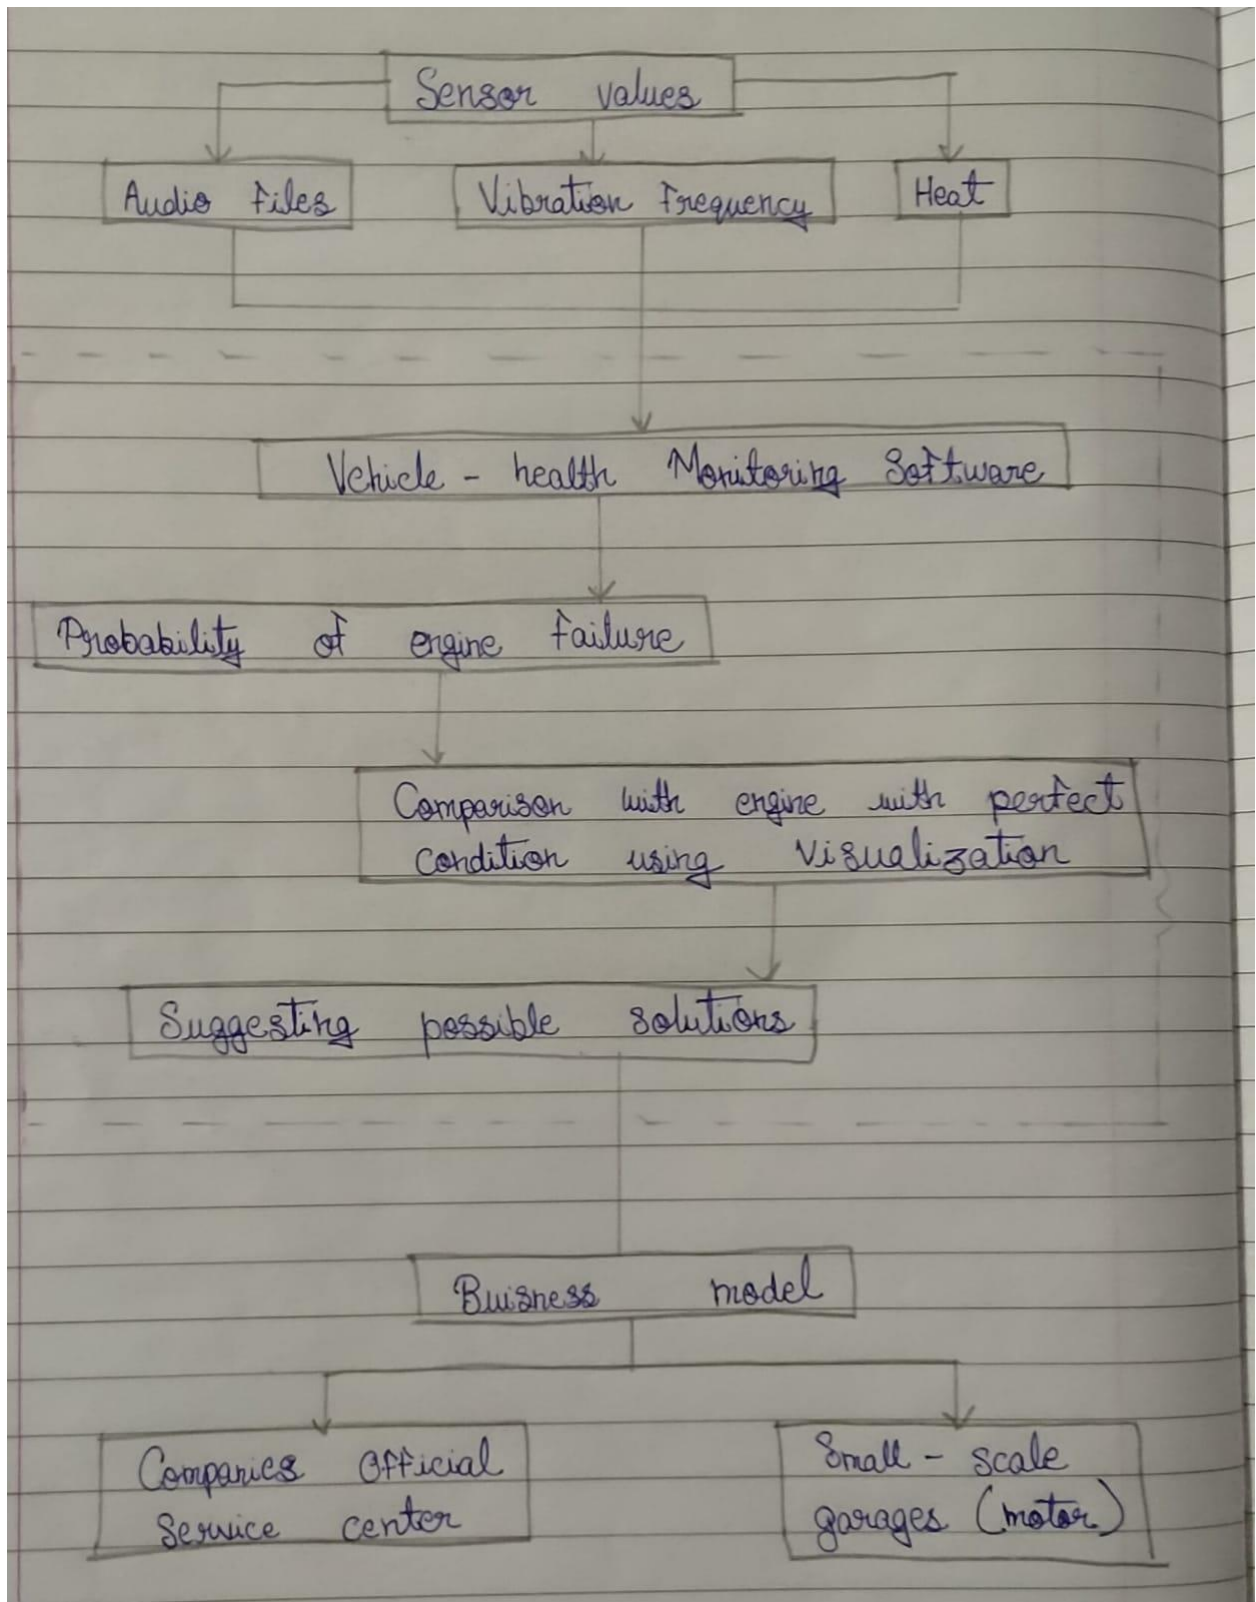 Sensor values
Audio Files
Vibration Frequency
Heat
Vehicle - health Monitoring Software
Probability of engine failure
Comparison with engine with perfect
condition using visualization
Suggesting possible solutions
Buisness model
Companies Official
Service center
Small - scale
garages (motor)